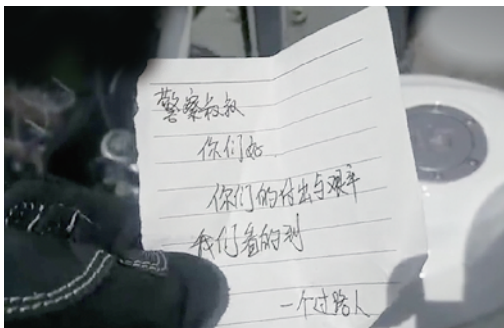 警察叔叔
你们好.
你们的付出与艰辛
我们看的到
一个过路人